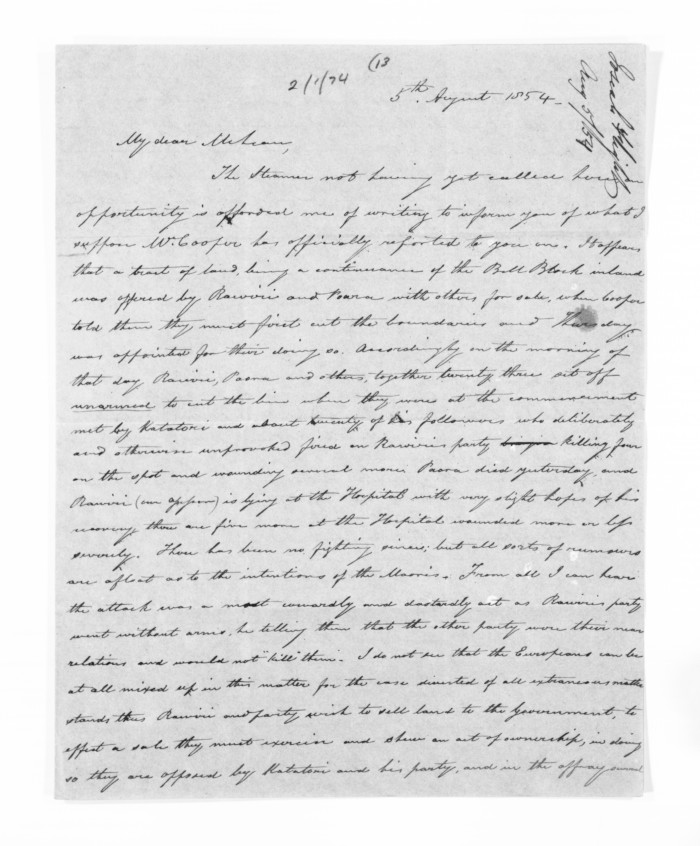 (13
2/1/74
5th. August 1854.
Aug 5/54
My dear McLean,
The Steamer not having yet called here
opportunity is afforded me of writing to inform you of what I
suppose Mr. Cooper has officially reported to you on. It appears
that a tract of land, being a continuance of the Bell Block inland
was offered by Rawiri and Paora with others for sale, when Cooper
told them they must first cut the boundaries and Thursday
was appointed for their doing so. Accordingly on the morning of
that day Rawiri, Paora and others, together twenty three set off
unarmed to cut the line when they were at the commencement
met by Katatori and about twenty of his followers who deliberately
and otherwise unprovoked fired on Rawiri's party killing four
on the spot and wounding several more. Paora died yesterday, and
Rawiri (our assessor) is lying at the Hospital with very slight hopes of his
recovery, there are five more at the Hospital wounded more or less
severely. There has been no fighting since; but all sorts of rumours
are afloat as to the intentions of the Maoris. From all I can hear
the attack was a most cowardly and dastardly act as Rawiri's party
went without arms, he telling them that the other party were their near
relations and would not "kill" them. I do not see that the Europeans can be
at all mixed up in this matter for the case divested of all extraneous matter
stands thus Rawiri and party wish to sell land to the Government, to
effect a sale they must exercise and shew an act of ownership, in doing
so they are opposed by Katatori and his party, and in the affray